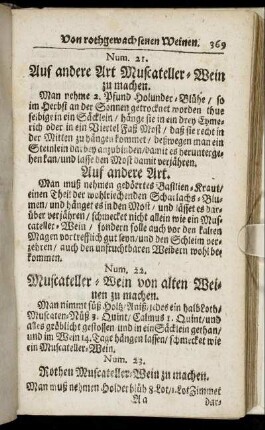 Von rothgewachsenen Weinen. 369
Num. 21.
Auf andere Art Muscateller-Wein
zu machen.
Man nehme 2. Pfund Holunder-Blühe / so
im Herbst an der Sonnen getrocknet worden / thue
selbige in ein Säcklein / hänge sie in ein drey Eyme-
rich oder in ein Viertel Faß Most / daß sie recht in
der Mitten zu hängen kommet / deßwegen man ein
Steinlein darbey anzubinden / damit es herunterge-
hen kan / und lasse den Most damit verjähren.
Auf andere Art.
Man muß nehmen gedörrtes Bastien-Kraut /
einen Theil der wohlriechenden Scharlachs-Blu-
men / und hänget es in den Most / und lässet es dar-
über verjähren / schmecket nicht allein wie ein Mus-
cateller-Wein / sondern solle auch vor den kalten
Magen vortrefflich gut seyn / und den Schleim ver-
zehren / auch den unfruchtbaren Weibern wohl be-
kommen.
Num. 22.
Muscateller-Wein von alten Wei-
nen zu machen.
Man nimmt süß Holtz / Aniß / jedes ein halb Loth /
Muscaten-Nüß 3. Quint / Calmus 1. Quint / und
alles gröblicht gestossen und in ein Säcklein gethan /
und im Wein 14. Tage hängen lassen / schmecket wie
ein Muscateller-Wein.
Num. 23.
Rothen Muscateller-Wein zu machen.
Man muß nehmen Holderblüh 8. Lot / 1. Lot Zimmet
Aa dar-